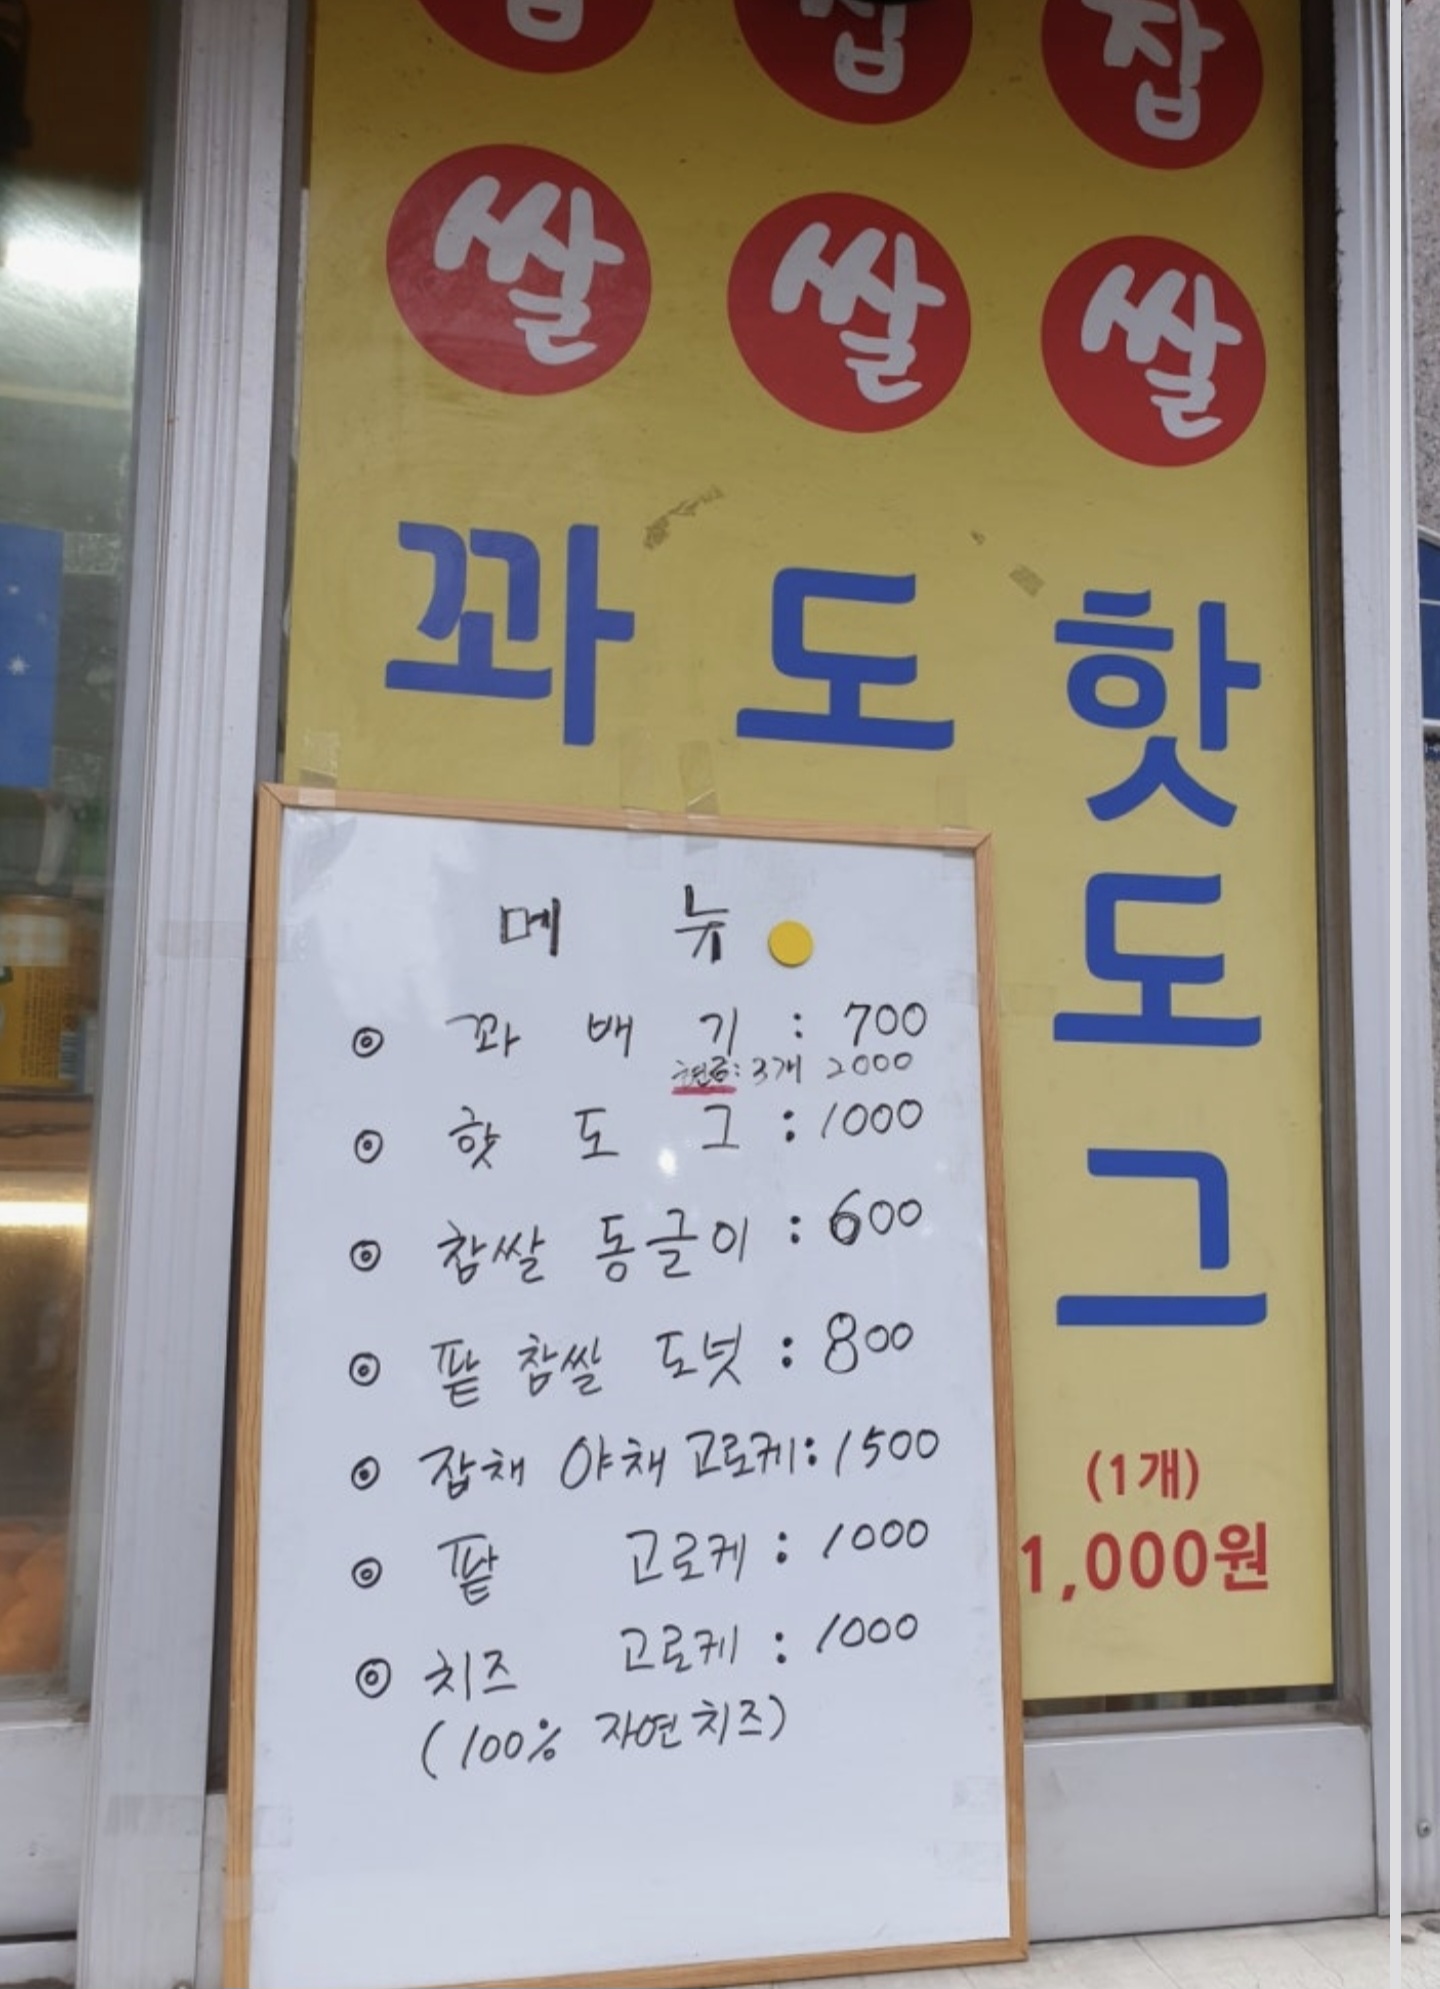 찹 찹 찹
쌀 쌀 쌀
꽈 도 핫
도
그
(1개)
1,000원
메 뉴
◎ 꽈 배 기 : 700
현금: 3개 2000
◎ 핫 도 그 : 1000
◎ 찹쌀 동글이 : 600
◎ 팥 찹쌀 도넛 : 800
◎ 잡채 야채 고로케 : 1500
◎ 팥 고로케 : 1000
◎ 치즈 고로케 : 1000
(100% 자연치즈)